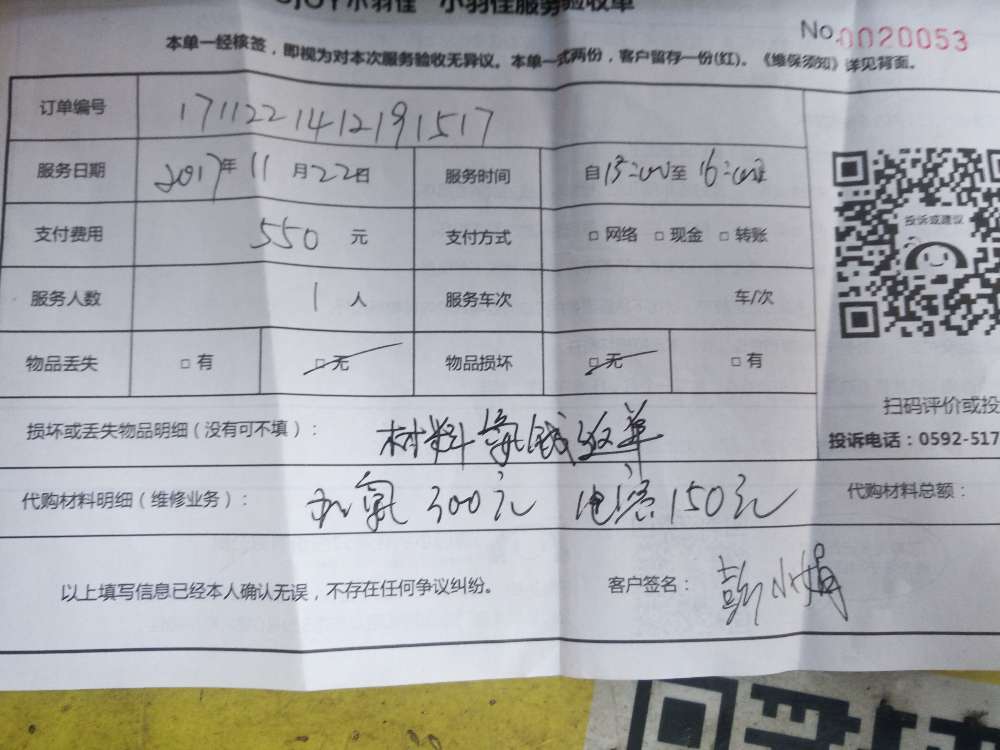 小羽佳 小羽佳服务验收单
No.0020053
本单一经核签，即视为对本次服务验收无异议。本单一式两份，客户留存一份(红)。《维保须知》详见背面。
订单编号 1711221412191517
服务日期 2017年11月22日 服务时间 自13:00至16:00
支付费用 550 元 支付方式 □ 网络 □ 现金 □ 转账
投诉或建议
服务人数 1 人 服务车次 车/次
物品丢失 □ 有 □ 无 物品损坏 □ 无 □ 有
扫码评价或投
损坏或丢失物品明细（没有可不填）： 材料 单
投诉电话：0592-517
代购材料明细（维修业务）： 加氟 300元 电容 150元
代购材料总额：
以上填写信息已经本人确认无误，不存在任何争议纠纷。 客户签名： 彭小娟